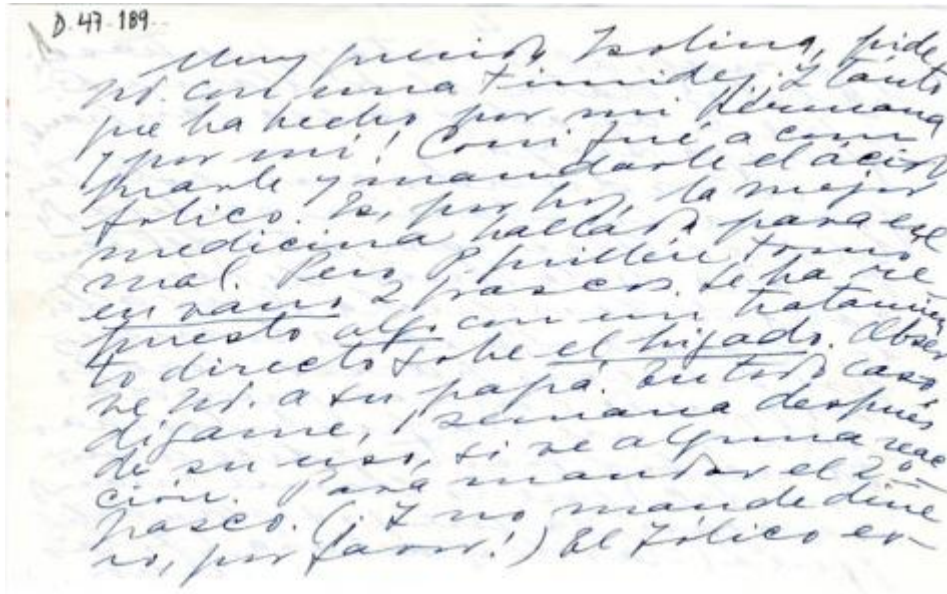 D. 47-189
Muy querida Isolina, pide
Ud. con una timidez. Y tanto
que ha hecho por mi hermana
y por mí! Coni fué a com
prarle y mandarle el ácido
fólico. Es, por hoy, la mejor
medicina hallada para ese
mal. Pero P. Guillén tomó
en vano 2 frascos. Se ha re
puesto algo con un tratamien
to directo sobre el hígado. Obser
ve Ud. a su papá. En todo caso
dígame, 1 semana después
de su uso, si ve alguna reac
ción. Para mandar el 2º
frasco. (¡Y no mande dine
ro, por favor!) El Fólico es